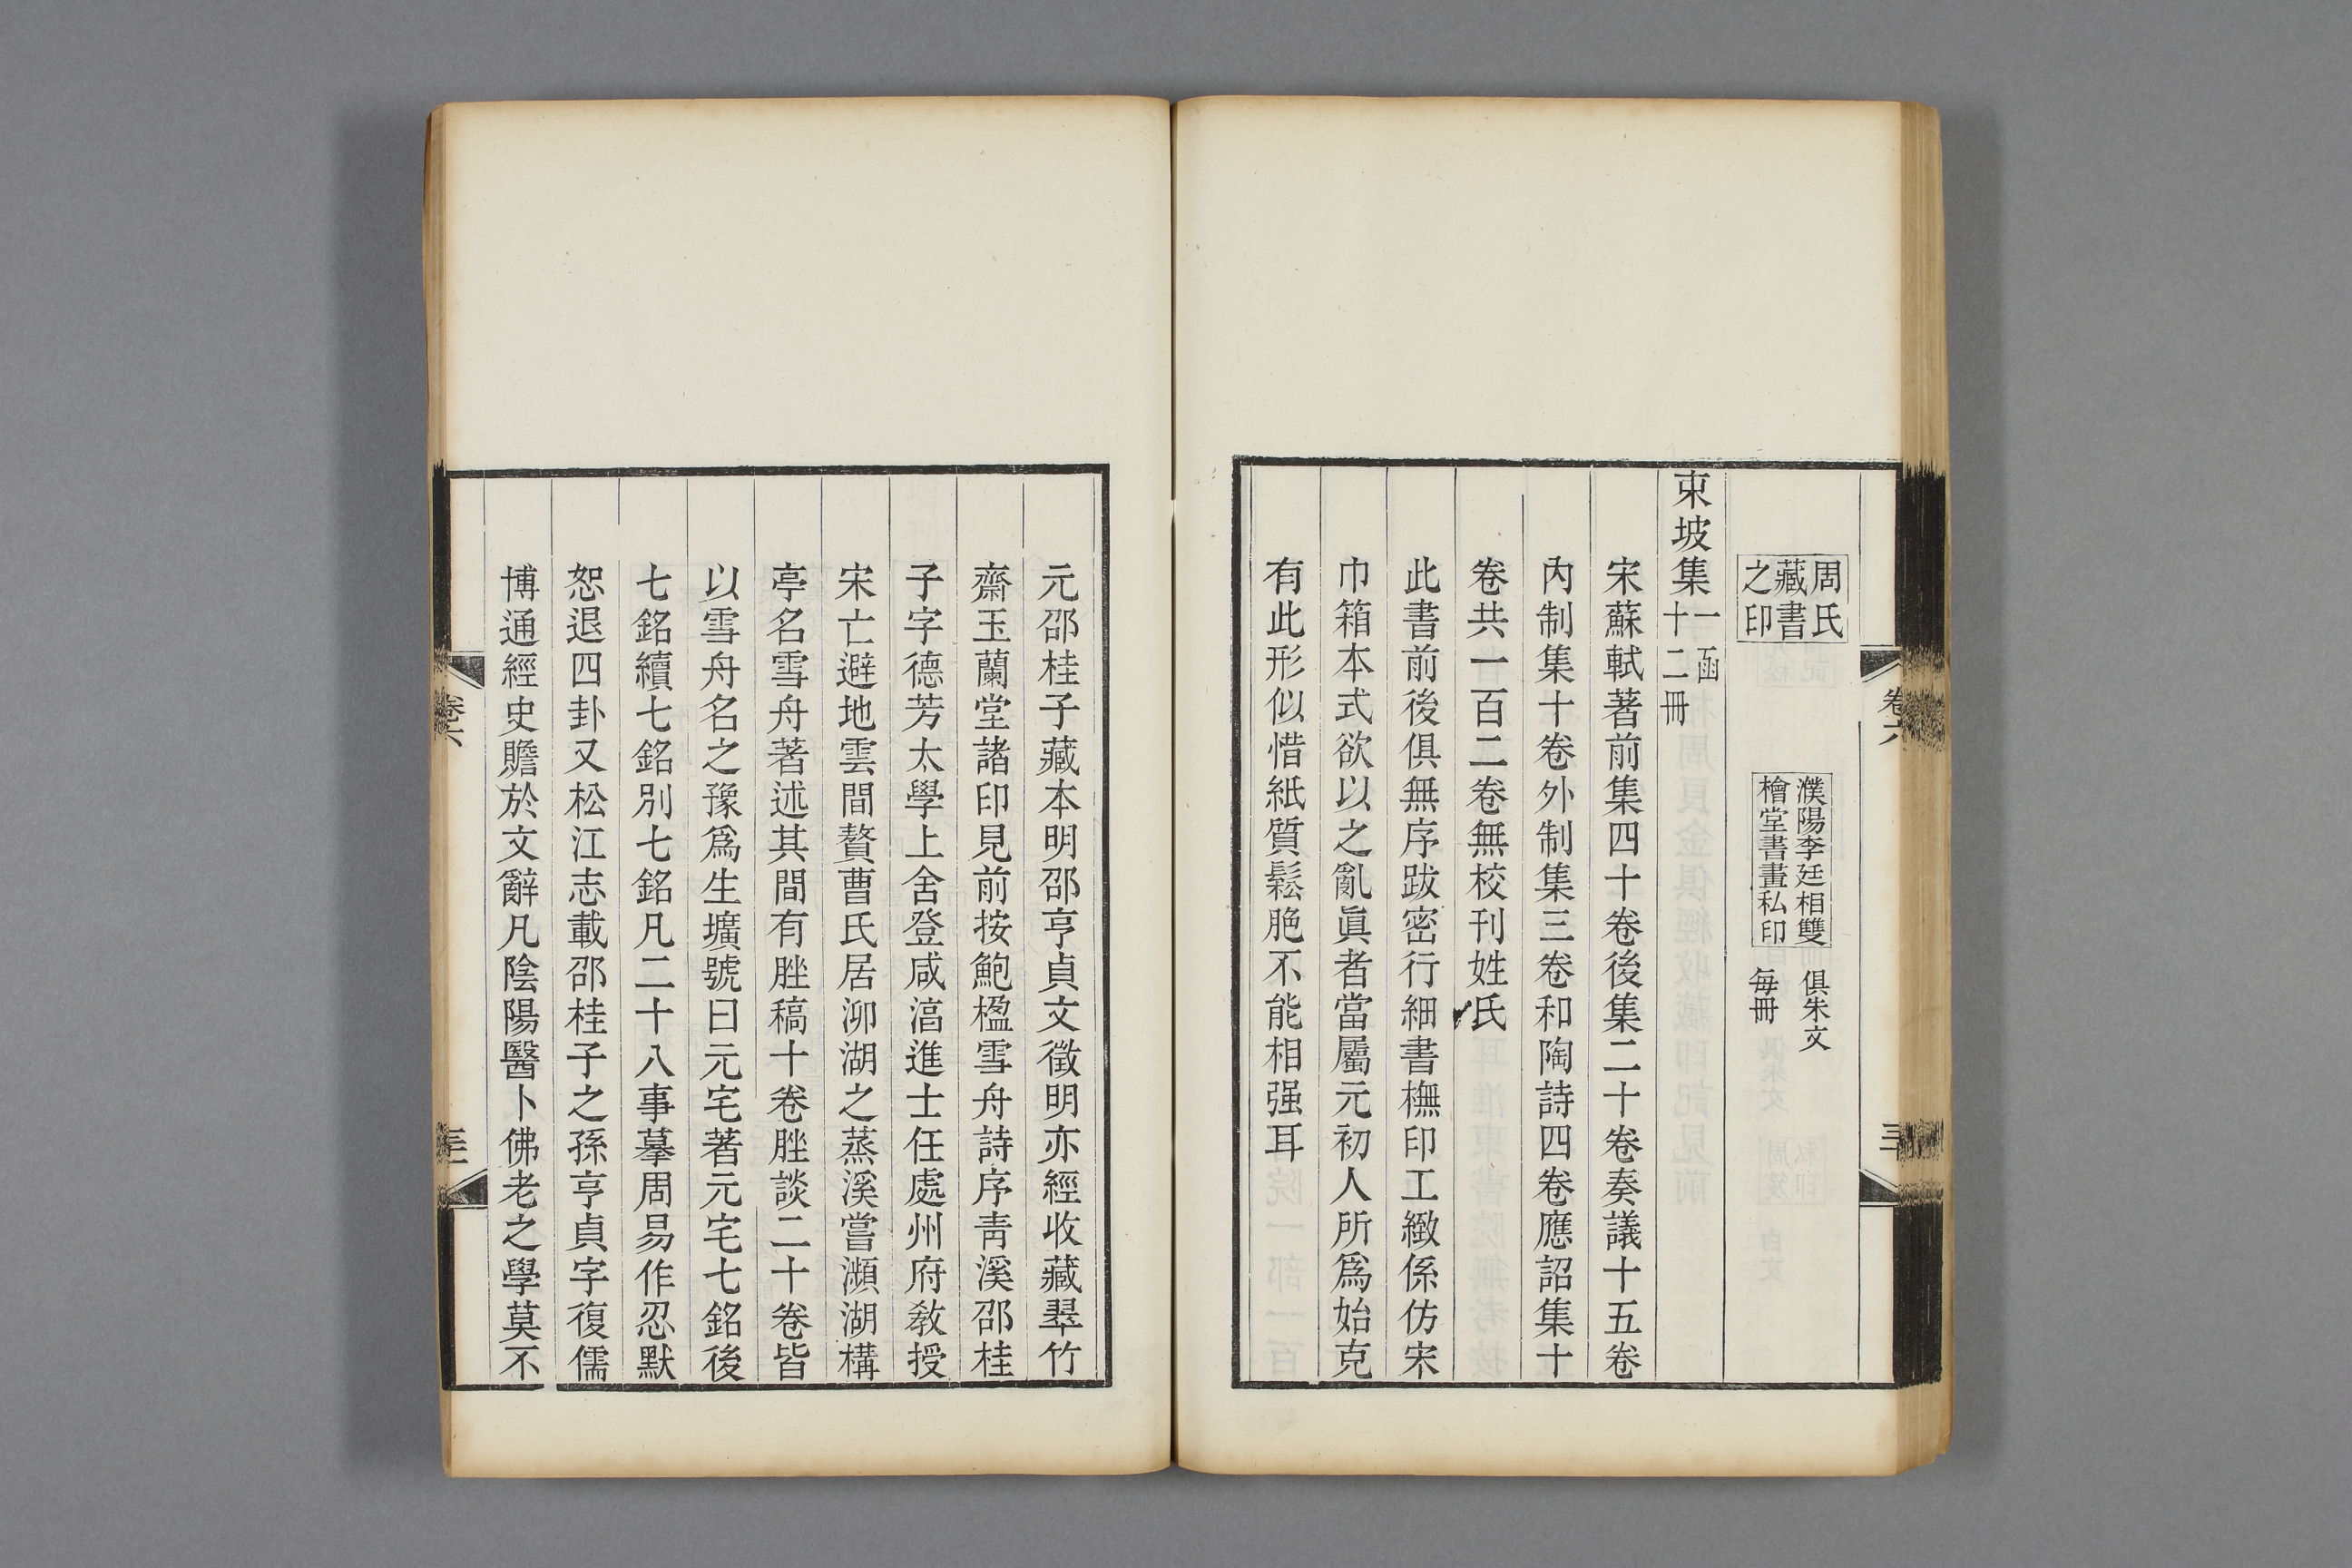 周氏
藏書
之印
濮陽李廷相雙
檜堂書畫私印
俱朱文
每冊
東坡集一函
十二冊
宋蘇軾著前集四十卷後集二十卷奏議十五卷
內制集十卷外制集三卷和陶詩四卷應詔集十
卷共一百二卷無校刊姓氏
此書前後俱無序跋密行細書橅印工緻係仿宋
巾箱本式欲以之亂眞者當屬元初人所爲始克
有此形似惜紙質鬆脆不能相强耳
卷六
元邵桂子藏本明邵亨貞文徵明亦經收藏翠竹
齋玉蘭堂諸印見前按鮑楹雪舟詩序靑溪邵桂
子字德芳太學上舍登咸淳進士任處州府敎授
宋亡避地雲間贅曹氏居泖湖之蒸溪嘗瀕湖構
亭名雪舟著述其間有脞稿十卷脞談二十卷皆
以雪舟名之豫爲生壙號曰元宅著元宅七銘後
七銘續七銘別七銘凡二十八事摹周易作忍默
恕退四卦又松江志載邵桂子之孫亨貞字復儒
博通經史贍於文辭凡陰陽醫卜佛老之學莫不
卷六